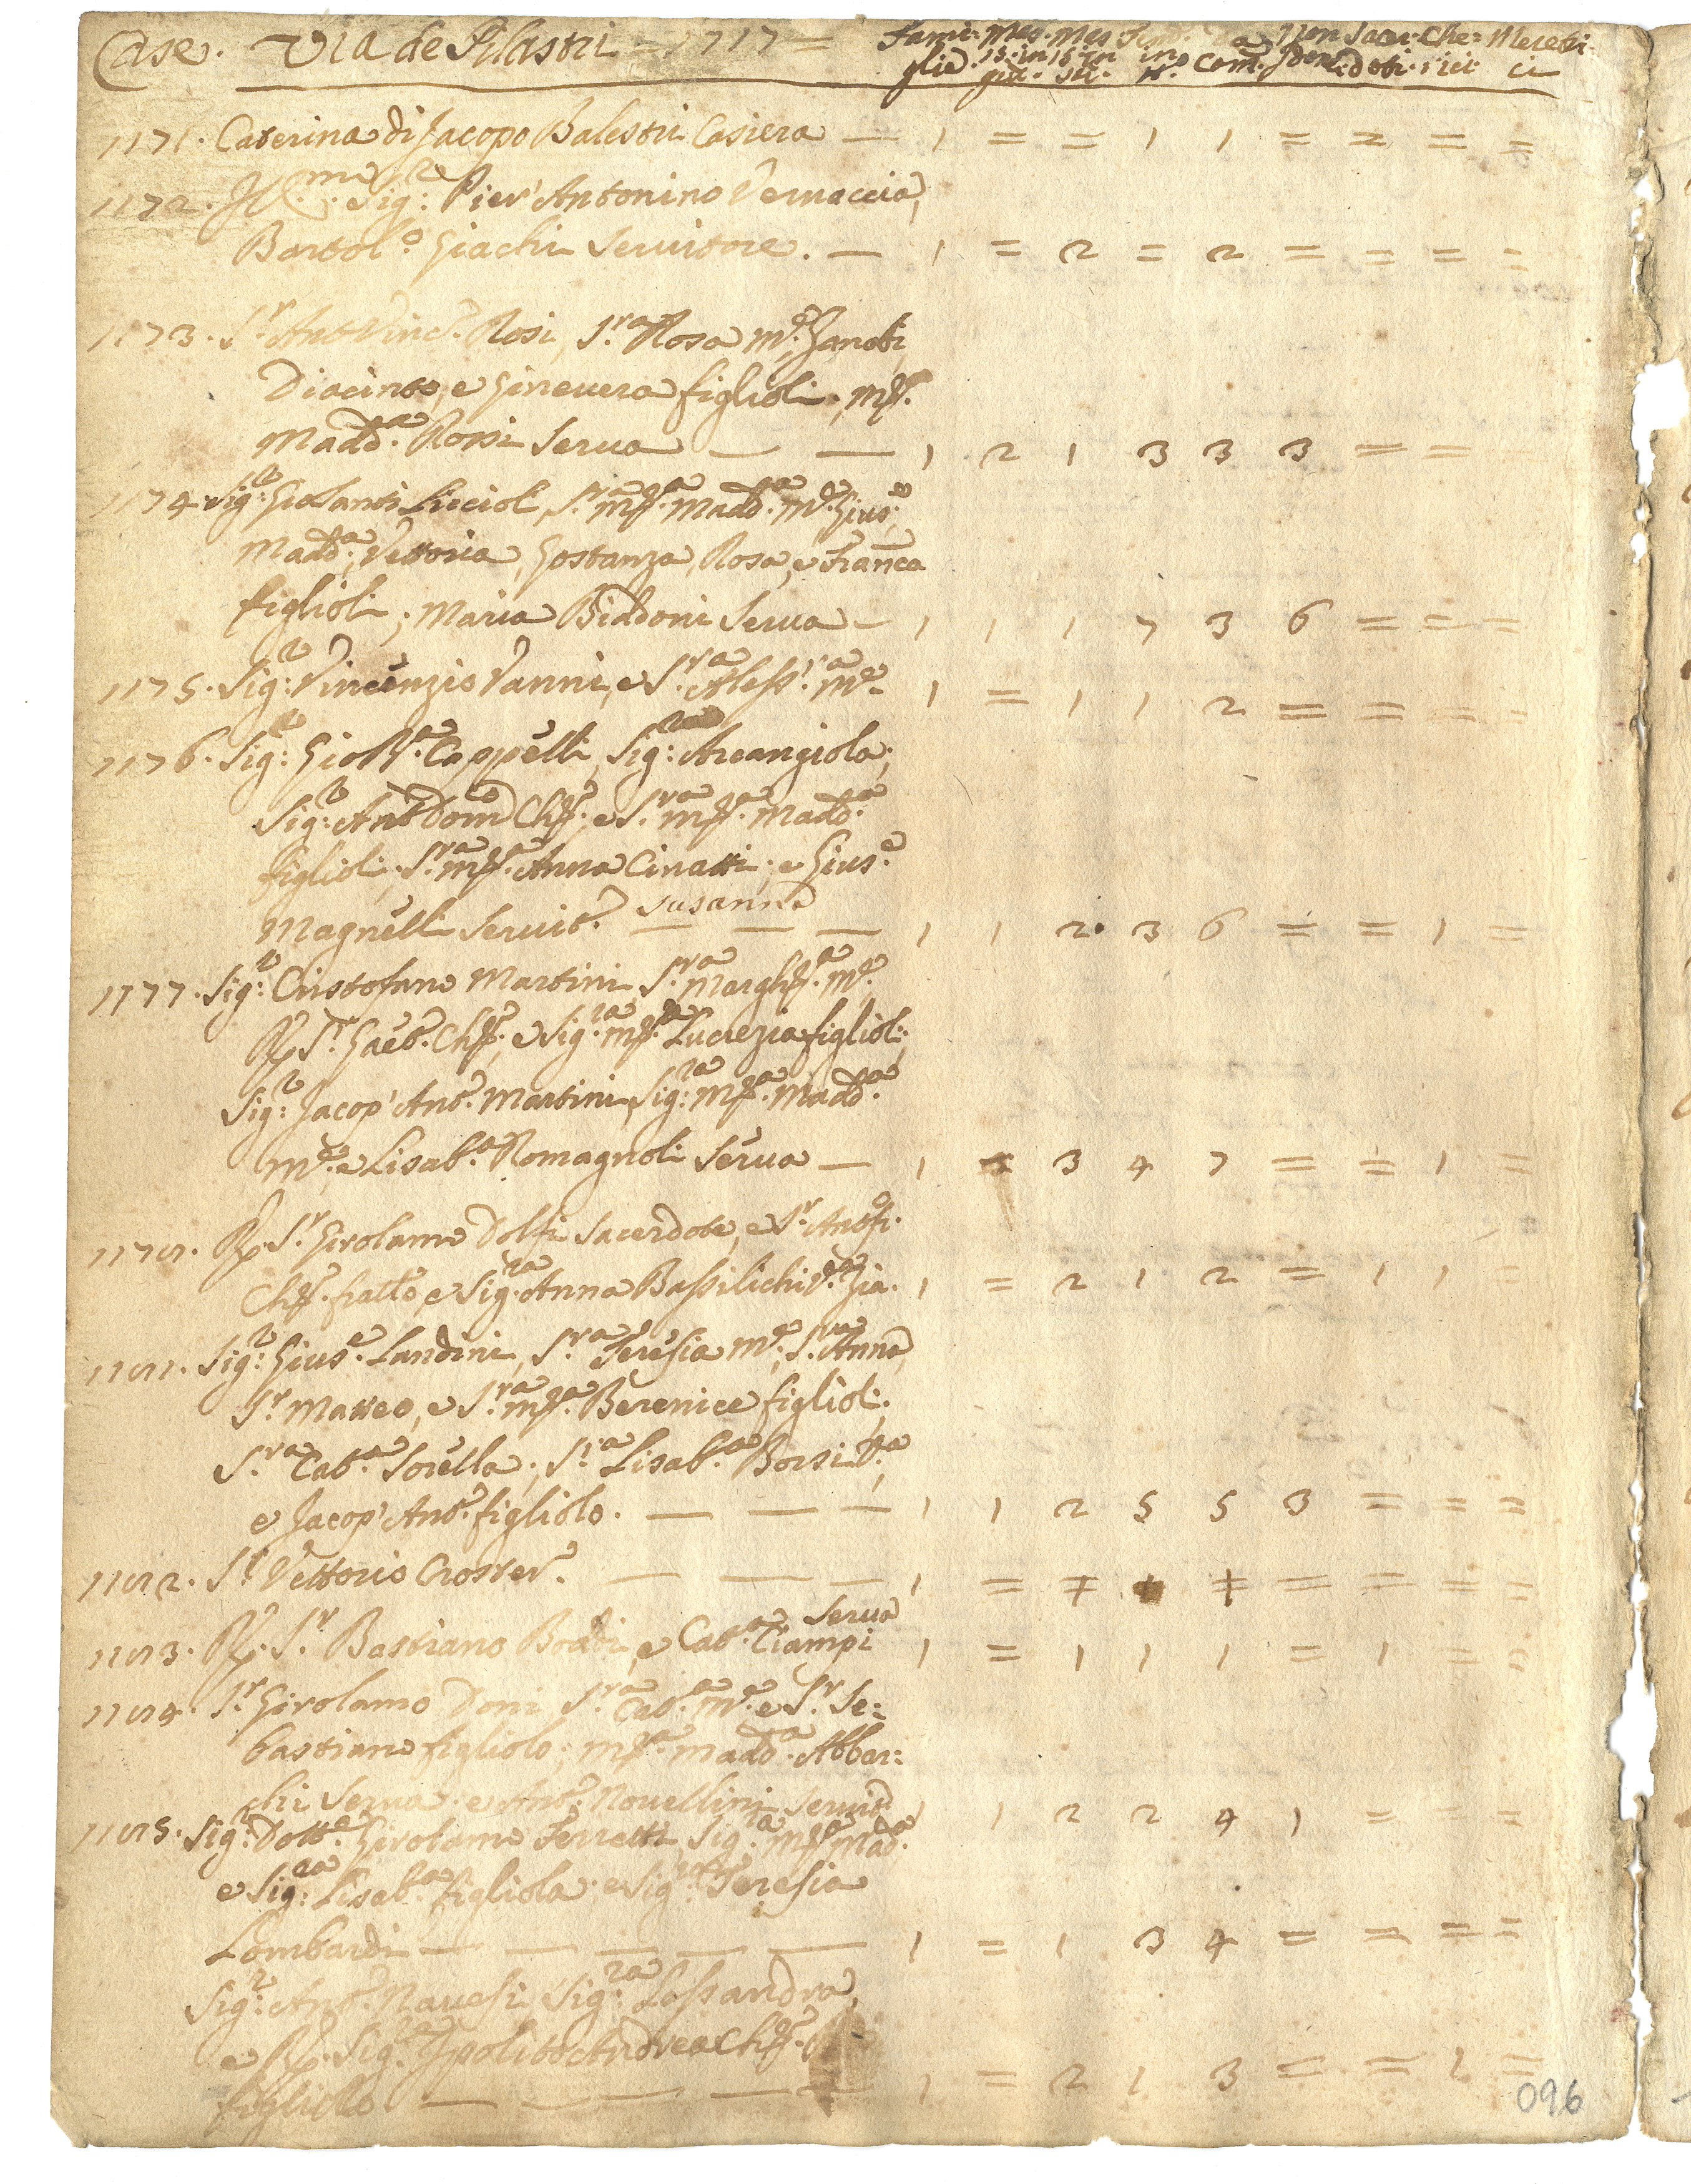 Case. Via de Pilastri = 1717 = Fami: Mas. Mas Non Sacer. Che: Meretri
glie. 15. in 15 in in Com. doti. rici ci
1171. Caterina di Jacopo Balestri Casiera — 1 = = 1 1 = = = =
1172. Ill.mo Sig:r Pier' Antonino Vernaccia,
Bartol.o Giachi Servitore. — 1 = 2 = 2 = = = =
1173. S.r Ant Vinc.o Rosi, S.ra Rosa M.e, Zanobi,
Diacinto, e Ginevera figlioli, M.a
Madd.a Rossi Serva — — 1 2 1 3 3 3 = = =
1174. Sig:r Gio Santi Liccioli, S.ra M.a Madd.a M.e Gius.e,
Madd.a, Vettoria, Gostanza, Rosa, e Franca
figlioli; Maria Biadoni Serva — 1 1 1 7 3 6 = = =
1175. Sig:r Vincenzio Vanni, e S.ra Aless.ra M.e 1 = 1 1 2 = = = =
1176. Sig:r Gio B.a Cappelli, Sig:ra Arcangiola,
Sig:r Ant Dom.o Ch.o, e S.ra M.a Madd.a
figlioli, S.ra M.a Anna Cinatti, e Gius.e
Magnelli Servit.e Susanna — — — 1 1 2. 3 6 = = 1 =
1177. Sig:r Cristofano Martini S.ra Margh.a M.e
R.o S.r Gaeb. Ch.o, e Sig.ra M.a Lucrezia figlioli,
Sig:r Jacop' Ant.o Martini, Sig:ra M.a Madd.a
M.e e Lisab.a Romagnoli Serva — 1 3 4 7 = = 1 =
1178. R.o S.r Girolamo Dolfi Sacerdote, e S.r Ant.o
Ch.o fratto e Sig.ra Anna Bassilichi V.a Zia. 1 = 2 1 2 = 1 1 =
1181. Sig:r Gius.e Landini, S.ra Teresia M.e, S.ra Anna,
S.r Matteo, e S.ra M.a Berenice figlioli,
S.ra Cat.a Sorella, S.ra Lisab.a Borsi V.a,
e Jacop' Ant.o figliolo. — — — 1 1 2 5 5 3 = = =
1182. S.r Vettorio Croster. — — — 1 = + + = = = =
1183. R.o S.r Bastiano e Cat.a Ciampi Serva 1 = 1 1 1 = 1 = =
1184. S.r Girolamo Doni S.ra Cat.a M.e e S.r Se:
bastiano figliolo; M.a Madd.a Abbar:
chi Serva e Ant.o Novellini Servit.e 1 1 2 2 4 1 = = =
1185. Sig:r Dott.e Girolamo Ferretti, Sig:ra M.a Mad.a
e Sig:ra Lisab.a figliola e Sig:ra Teresia
Lombardi — — — — — 1 = 1 3 4 = = = =
Sig:r Ant.o Navesi, Sig:ra Lessandra,
e R.o Sig.r Ipolito Andrea Ch.o
figliolo — — — — 1 = 2 1 3 = = 1 =
096